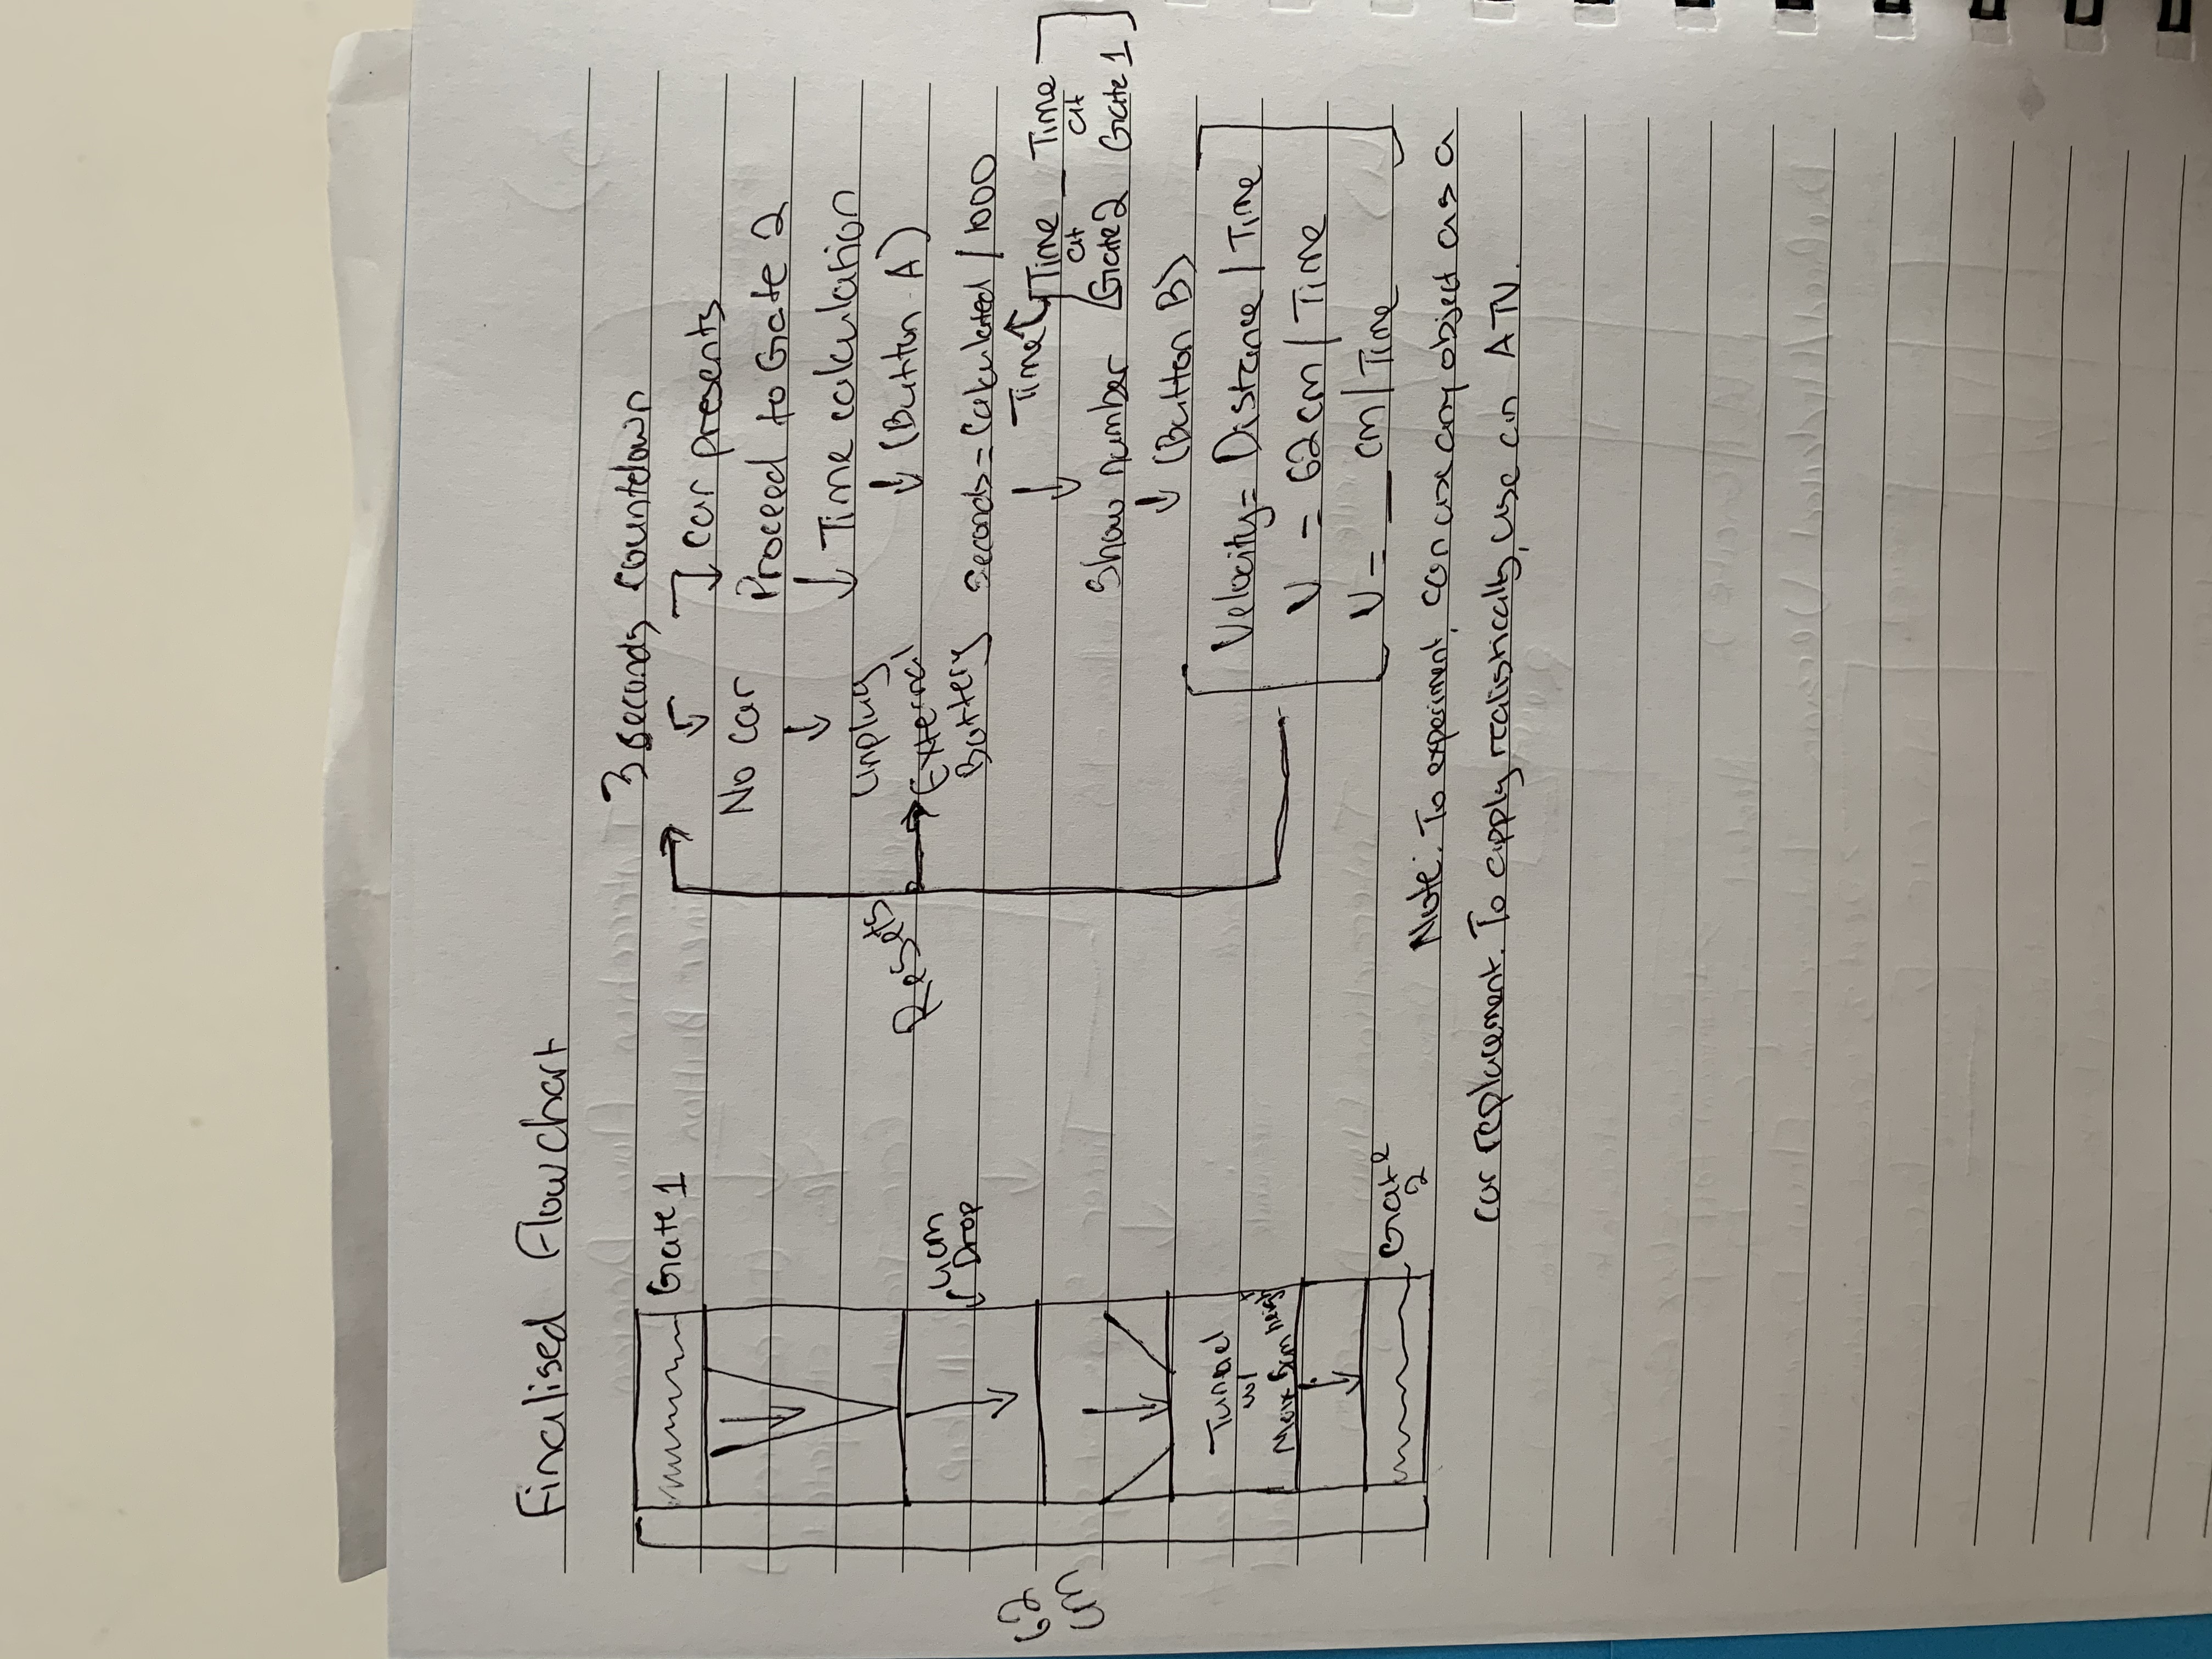 Finalised Flowchart
Gate 1
4cm
Drop
62
cm
Tunnel
w/
Max height
Gate
2
3 seconds countdown
No car
Car presents
Proceed to Gate 2
Unplug
External
Battery
Resets
Time calculation
(Button A)
Seconds = Calculated / 1000
Time
Time at Gate 2 - Time at Gate 1
Show number
(Button B)
Velocity = Distance / Time
V = 62cm / Time
V = __ cm / Time
Note: To experiment, can use any object as a
car replacement. To apply realistically, use an ATV.